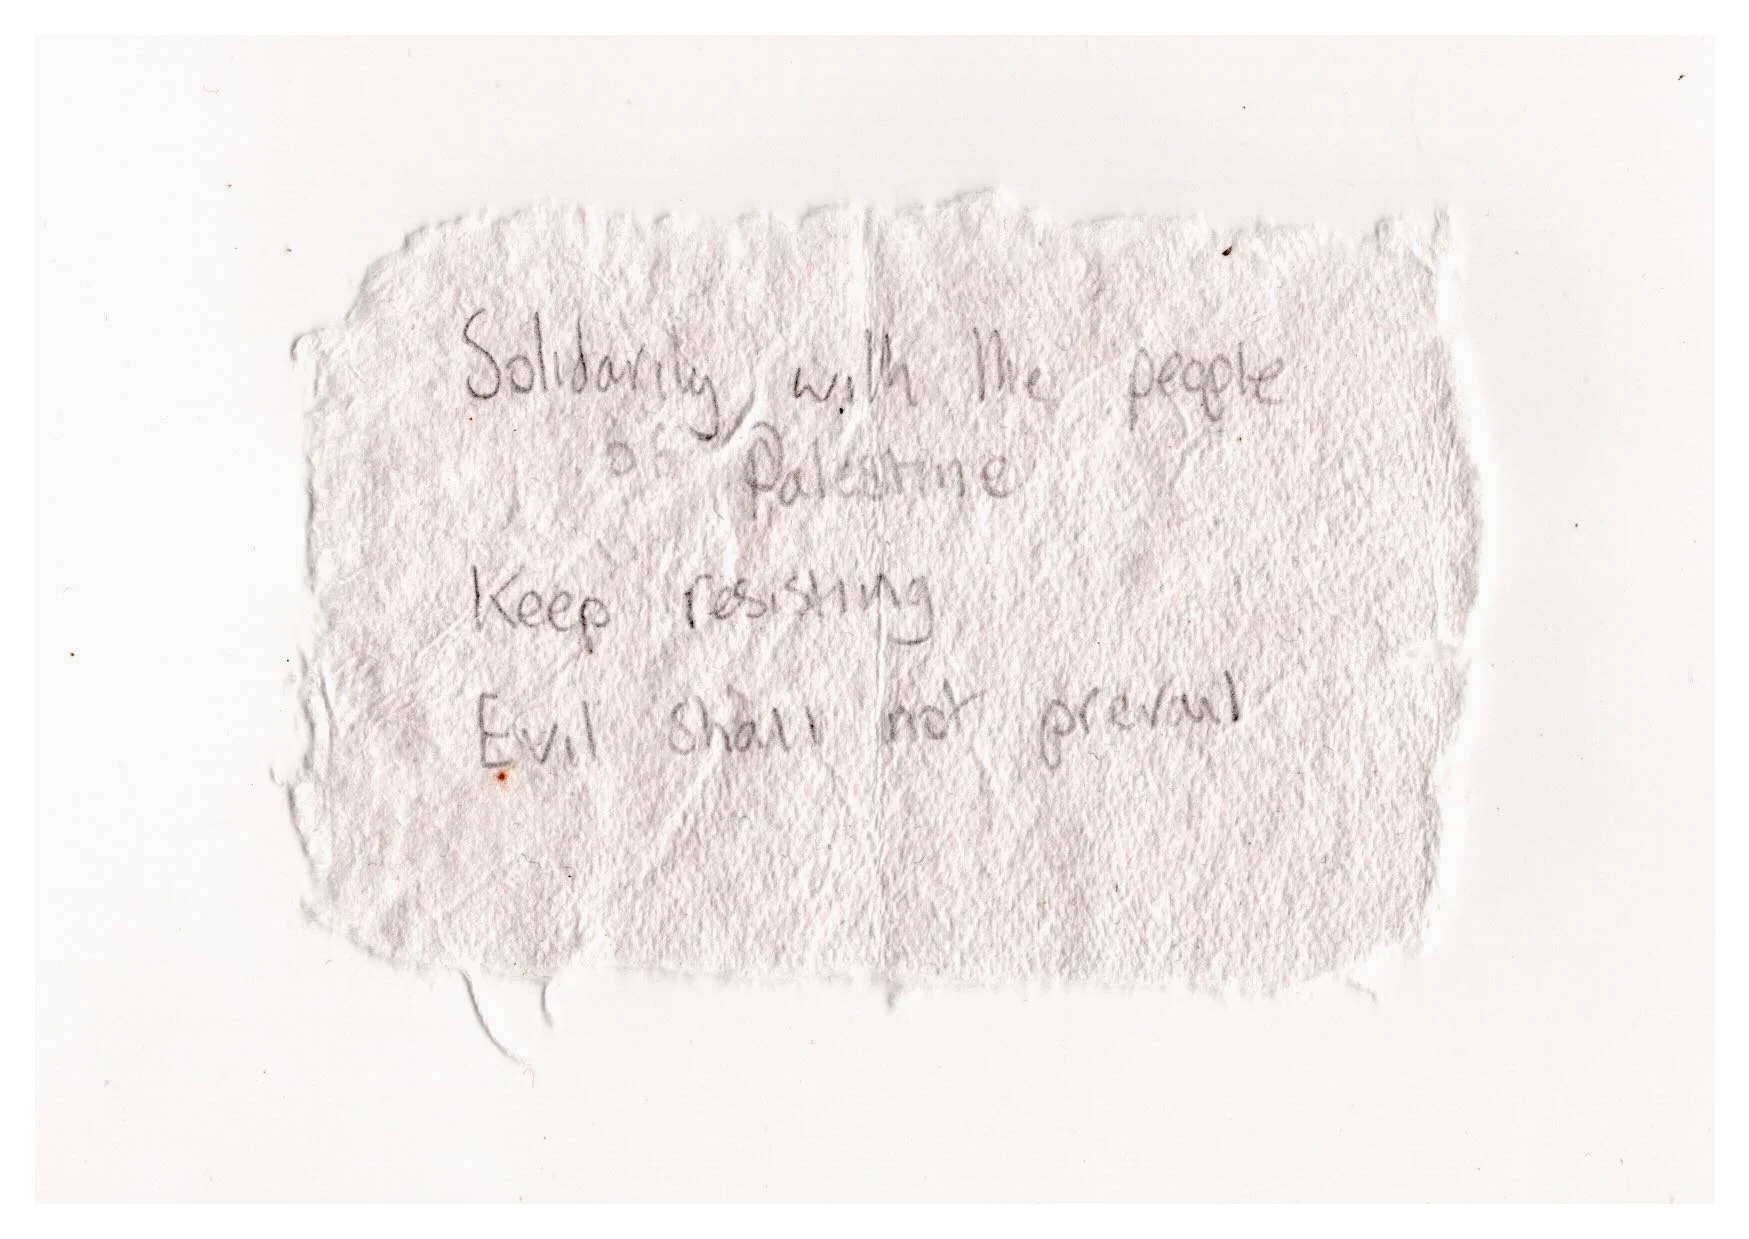 Solidarity with the people
of Palestine
Keep resisting
Evil shall not prevail